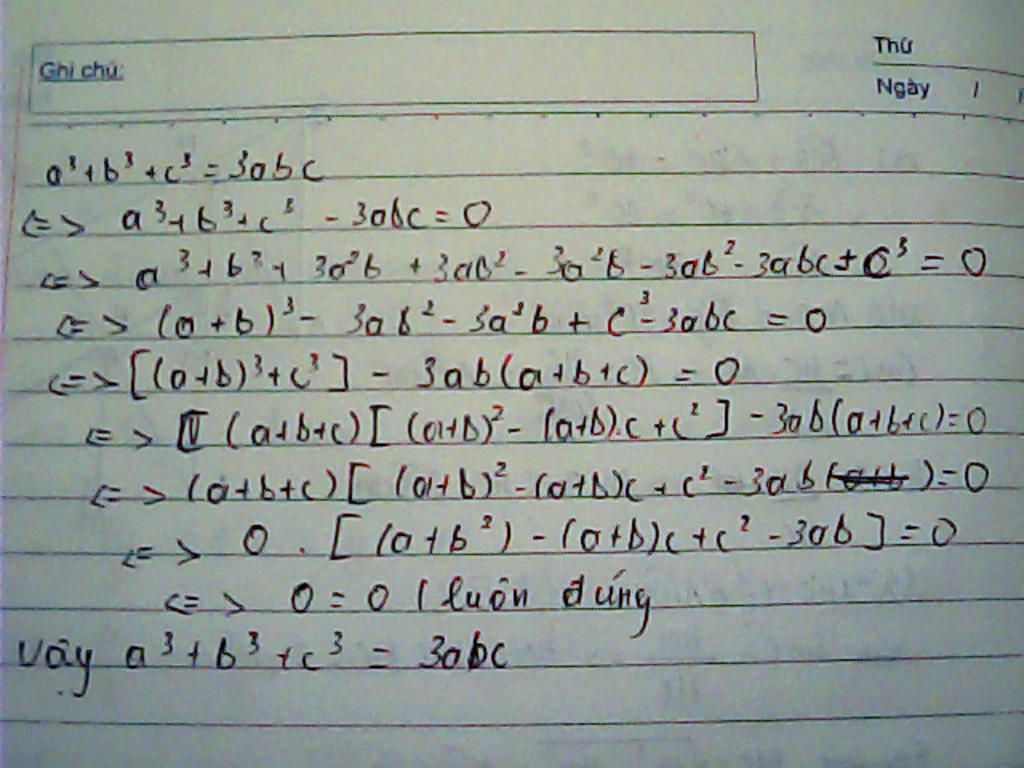 Ghi chú:
Thứ
Ngày / /
a³ + b³ + c³ = 3abc
<=> a³ + b³ + c³ - 3abc = 0
<=> a³ + b³ + 3a²b + 3ab² - 3a²b - 3ab² - 3abc + c³ = 0
<=> (a+b)³ - 3ab² - 3a²b + c³ - 3abc = 0
<=> [(a+b)³ + c³] - 3ab(a+b+c) = 0
<=> [(a+b+c)[(a+b)² - (a+b).c + c²] - 3ab(a+b+c) = 0
<=> (a+b+c)[(a+b)² - (a+b)c + c² - 3ab) = 0
<=> 0 . [(a+b²) - (a+b)c + c² - 3ab] = 0
<=> 0 = 0 ( luôn đúng
Vậy a³ + b³ + c³ = 3abc